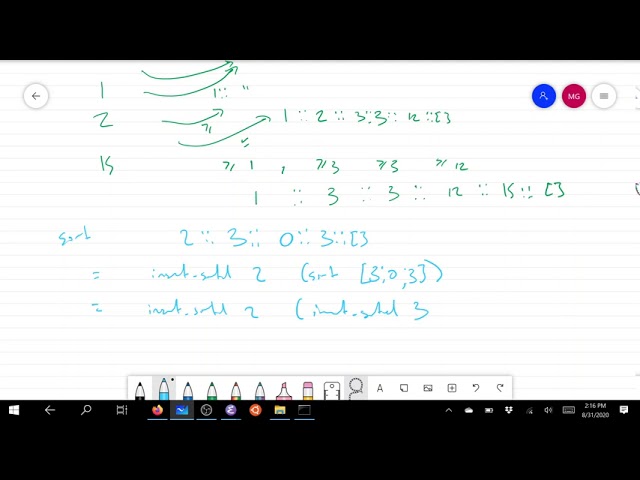 1 1:: "
MG
2 ≥ 1 :: 2 :: 3::3 :: 12 ::[]
15 ≥ 1 , ≥ 3 ≥ 3 ≥ 12
1 :: 3 :: 3 :: 12 :: 15 :: []
sort 2 :: 3 :: 0 :: 3 :: []
= insert_sorted 2 (sort [3;0;3])
= insert_sorted 2 (insert_sorted 3
A
2:16 PM
8/31/2020